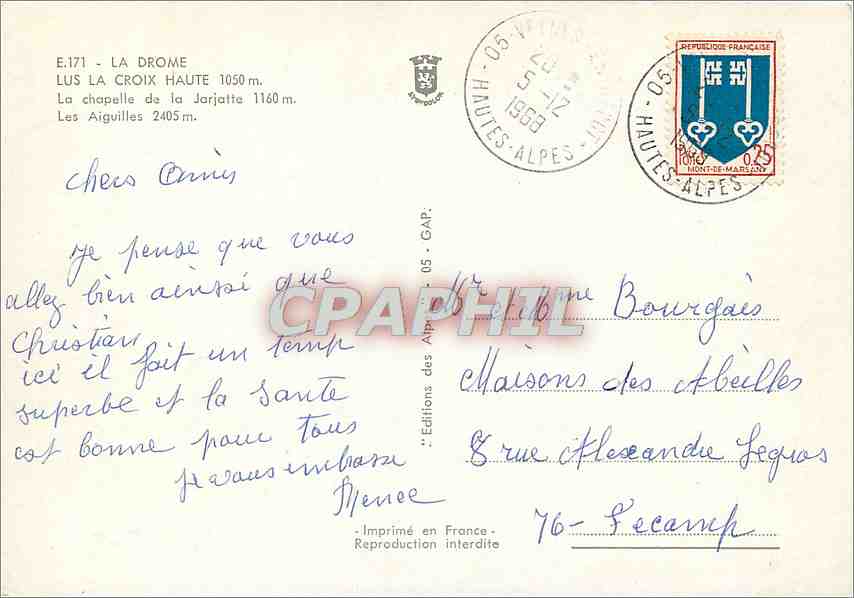 E.171 - LA DROME
LUS LA CROIX HAUTE 1050 m.
La chapelle de la Jarjatte 1160 m.
Les Aiguilles 2405 m.
chers Amis
Je pense que vous
allez bien ainsi que
Christian
ici il fait un temp
superbe et la sante
est bonne pour tous
Je vous embrasse
"Editions des Alp 05 - GAP.
- Imprimé en France -
Reproduction interdite
05
20
5 -12
1968
HAUTES-ALPES
REPUBLIQUE FRANÇAISE
0,25
MONT-DE-MARSAN
05
HAUTES-ALPES
Mr et Mme Bourgais
Maisons des Abeilles
8 rue Alexandre Legros
76 - Fecamp
CPAPHIL